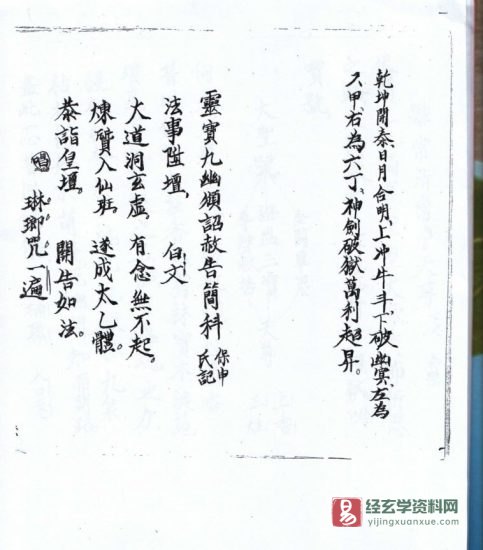 乾坤開泰、日月合明、上冲牛斗、下破幽冥、左為
六甲、右為六丁、神劍破獄、萬利超昇。
靈寶九幽頒詔赦告簡科 保申氏記
法事陞壇、 白文
大道洞玄虛、有念無不起。
煉質入仙班。遂成太乙體。
恭詣皇壇。 開告如法。
唱 琳瑯咒一遍
易 经玄学资料网
yijingxuanxue.com